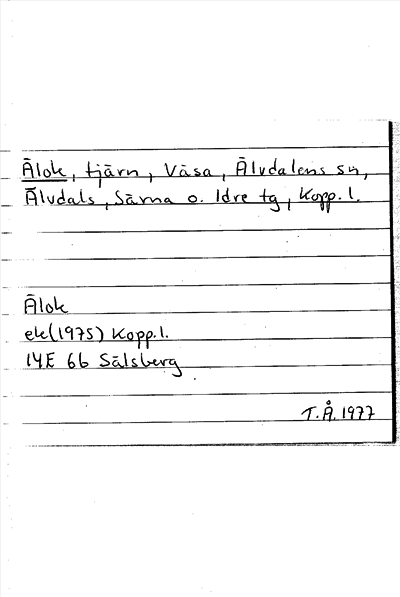 Älok, tjärn, Väsa, Älvdalens sn,
Älvdals, Särna o. Idre tg, Kopp. l.
Älok
ek (1975) Kopp. l.
14E 6b Sälsberg
T.Å. 1977